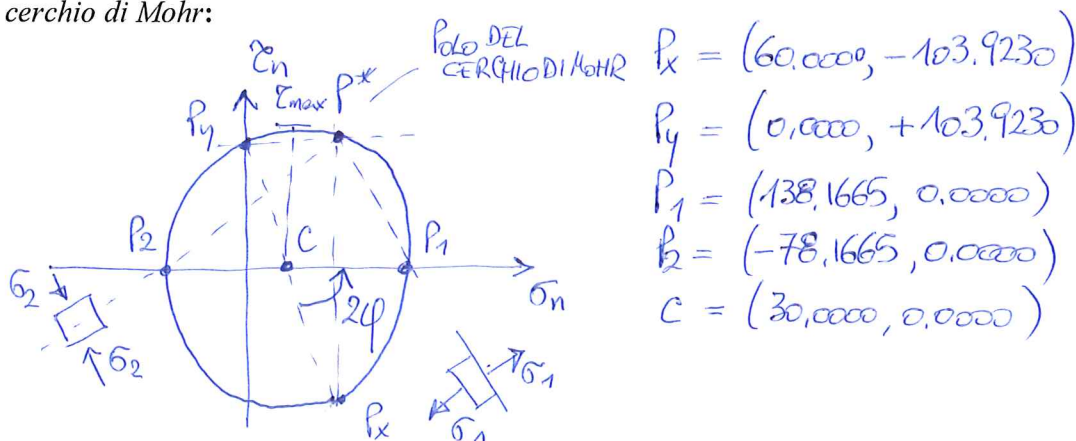 cerchio di Mohr:
POLO DEL
CERCHIO DI MOHR
τn
τmax
P*
Py
P2
C
P1
σn
2φ
σ2
σ2
σ1
σ1
Px
Px = (60.0000, -103.9230)
Py = (0,0000, +103,9230)
P1 = (138,1665, 0.0000)
P2 = (-78,1665, 0,0000)
C = (30,0000, 0,0000)